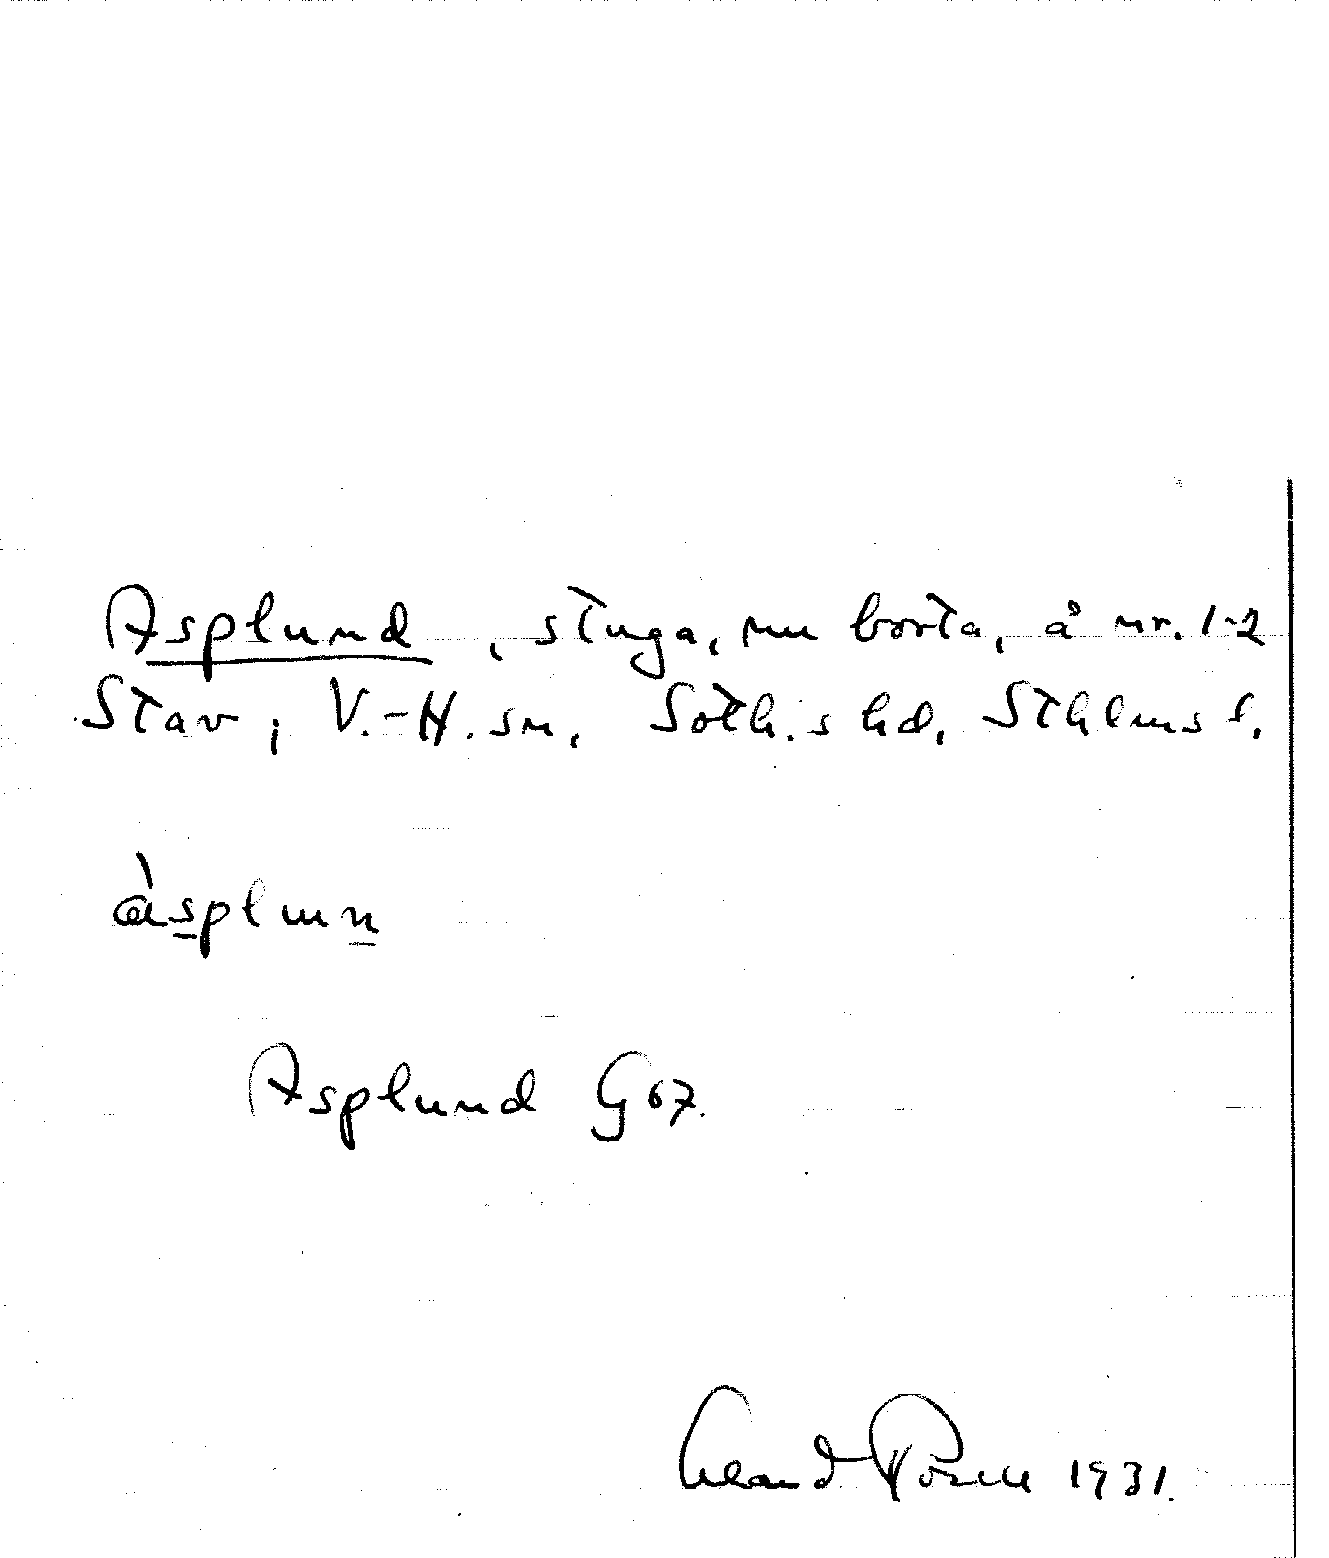 Asplund, stuga, nu borta, å nr. 1-2
Stav, V.-H. sn, Soth.s hd, Sthlms l.
àsplun
Asplund G 67.
1931.